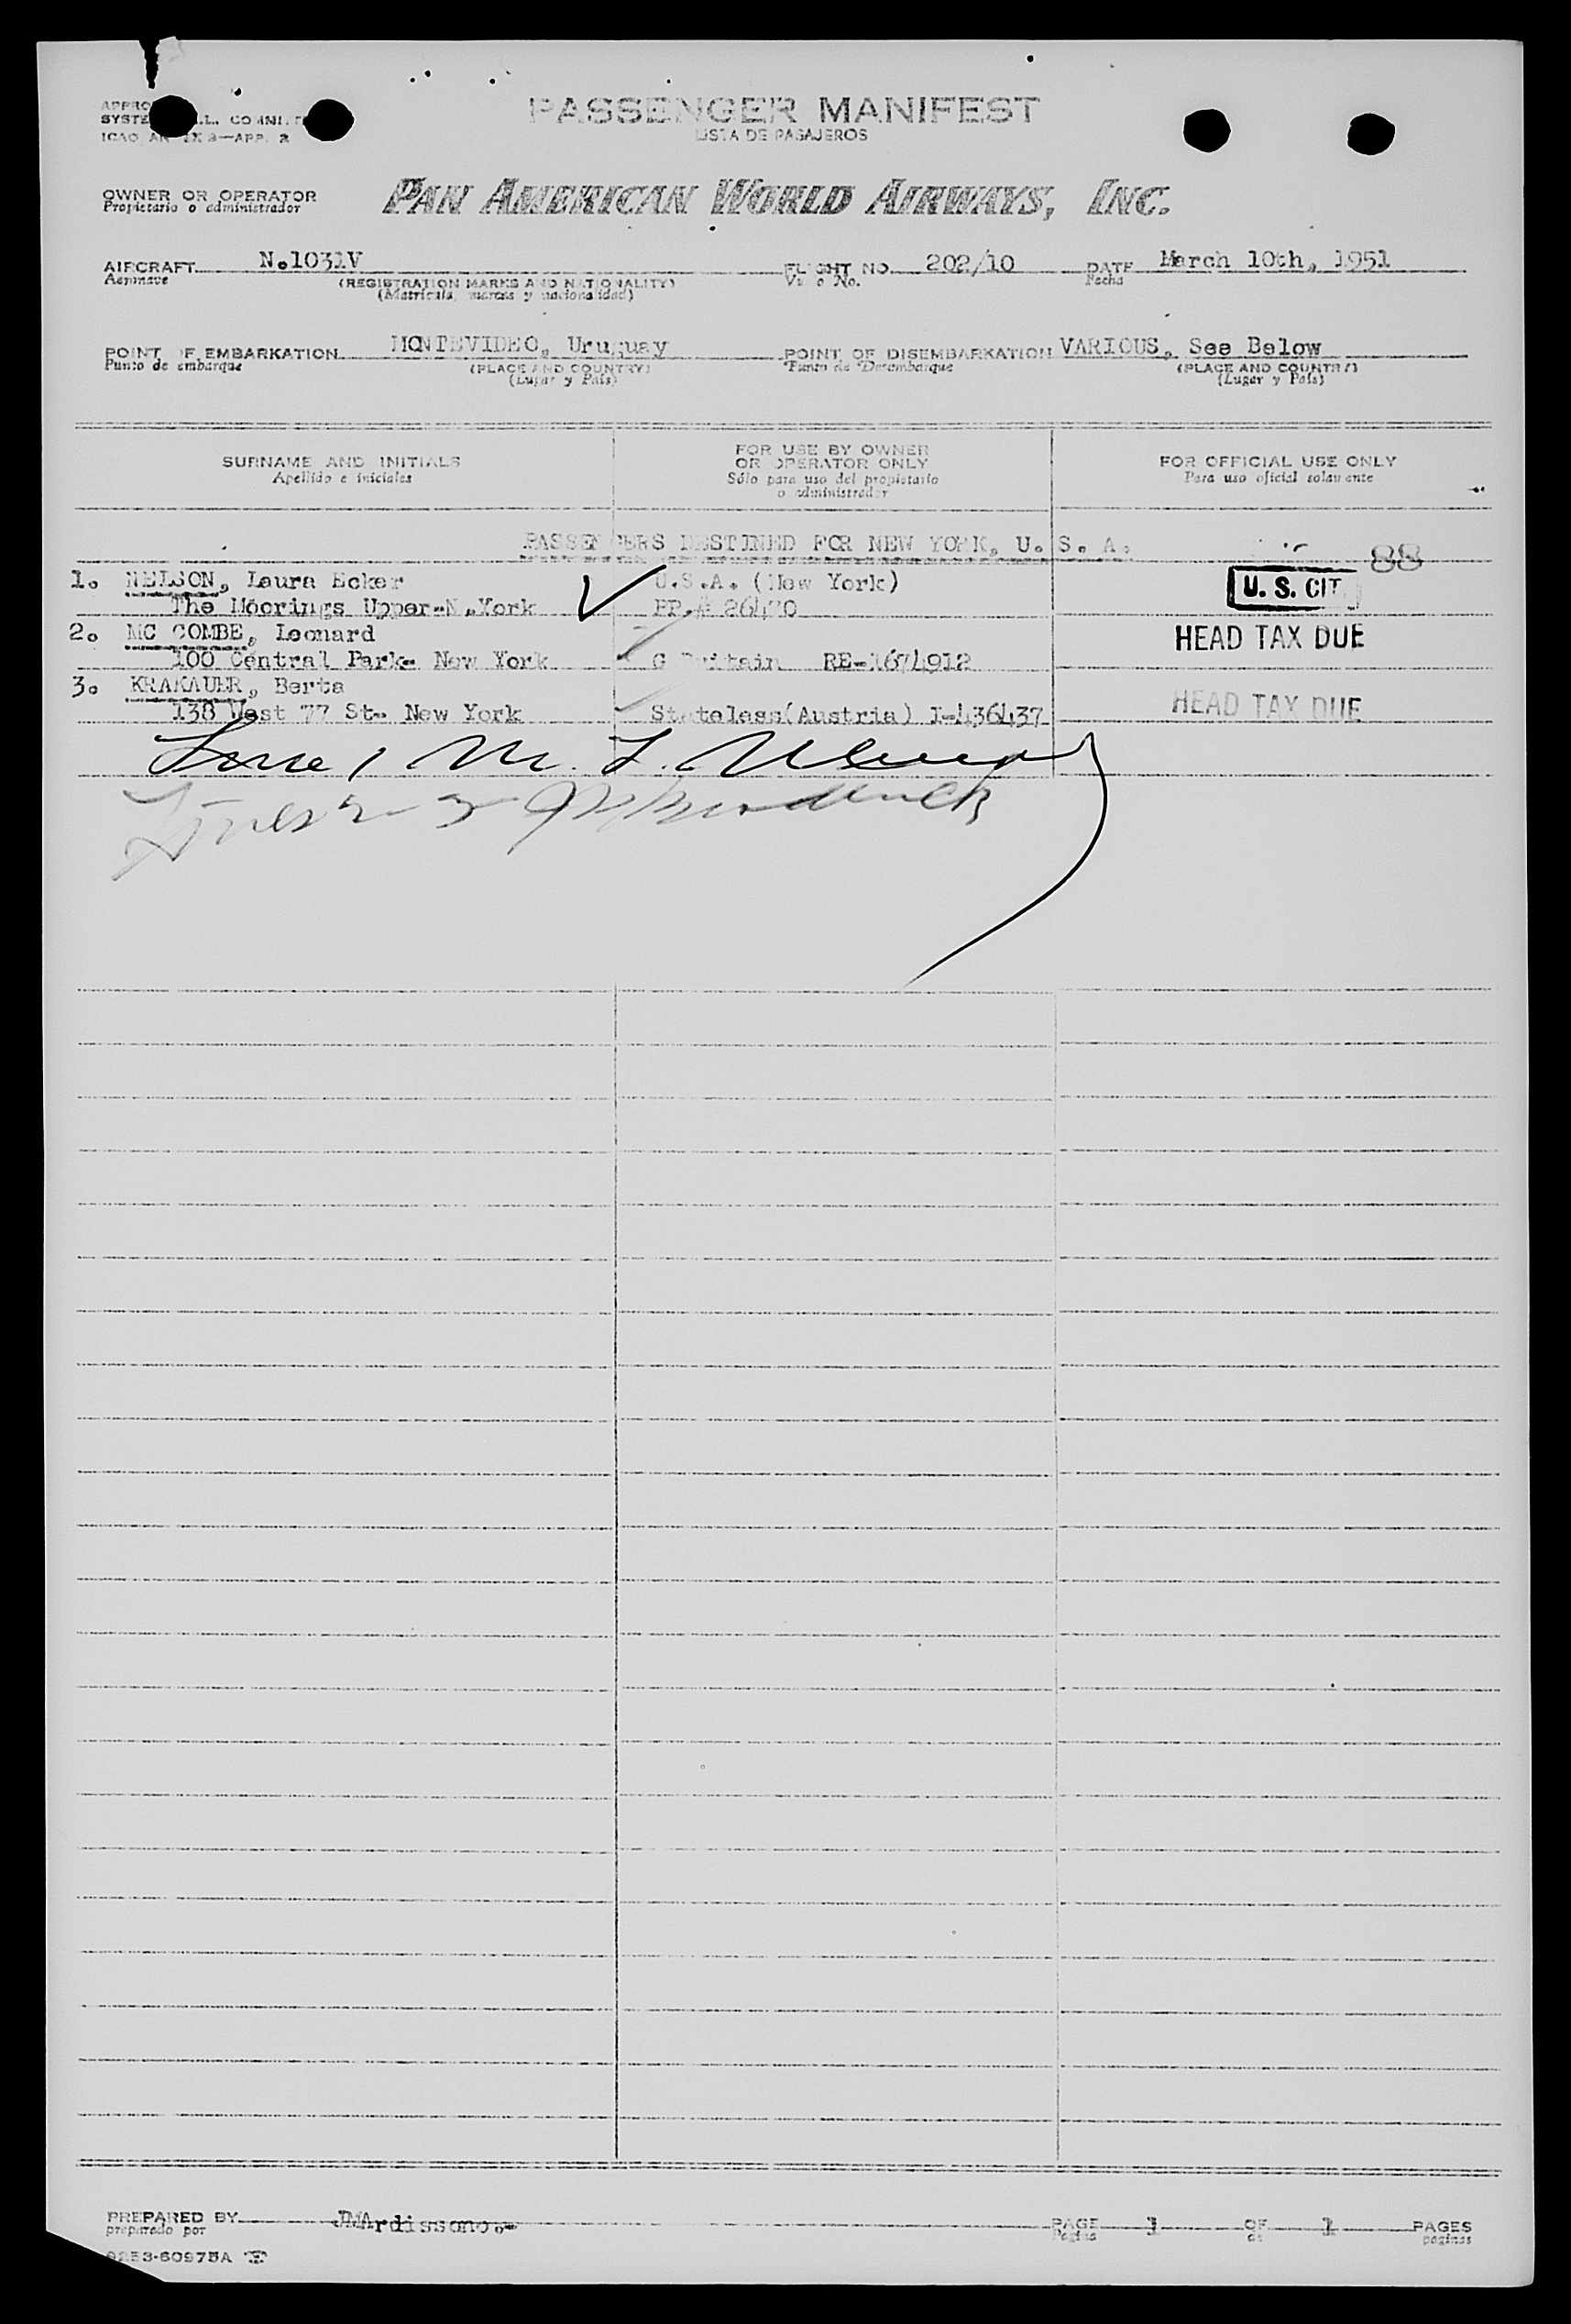 PASSENGER MANIFEST
LISTA DE PASAJEROS
ICAO AN 9—APP. 2
OWNER OR OPERATOR
Propietario o administrador
PAN AMERICAN WORLD AIRWAYS, INC.
AIRCRAFT N.1031V FLIGHT NO. 202/10 DATE March 10th, 1951
Aeronave (REGISTRATION MARKS AND NATIONALITY) Vuelo No. Fecha
(Matrícula, marcas y nacionalidad)
POINT OF EMBARKATION MONTEVIDEO, Uruguay POINT OF DISEMBARKATION VARIOUS, See Below
Punto de embarque (PLACE AND COUNTRY) Punto de Desembarque (PLACE AND COUNTRY)
(Lugar y País) (Lugar y País)
SURNAME AND INITIALS FOR USE BY OWNER OR OPERATOR ONLY FOR OFFICIAL USE ONLY
Apellido e iniciales Sólo para uso del propietario o administrador Para uso oficial solamente
PASSENGERS DESTINED FOR NEW YORK, U. S. A.
88
1. NELSON, Laura Ecker U.S.A. (New York) U. S. CIT
The Moorings Upper-N.York PP.#
2. MC COMBE, Leonard HEAD TAX DUE
100 Central Park- New York G Britain RE-1674912
3. KRAKAUER, Berta
138 West 77 St- New York Stateless(Austria) I-436437 HEAD TAX DUE
PREPARED BY JMArdissono.- PAGE 1 OF 1 PAGES
preparado por Página de páginas
9253-60975A